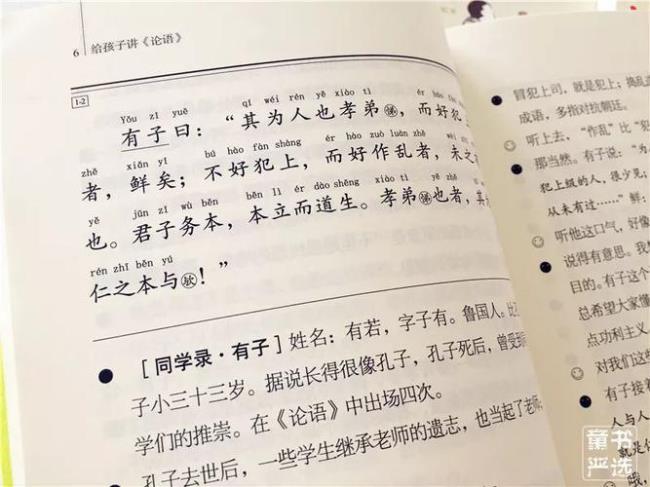 6 给孩子讲《论语》
1·2
Yǒu zǐ yuē qí wéi rén yě xiào tì ér hào
有子曰：“其为人也孝弟㊟，而好犯
zhě xiǎn yǐ bú hào fàn shàng ér hào zuò luàn zhě wèi
者，鲜矣；不好犯上，而好作乱者，未之
yě jūn zǐ wù běn běn lì ér dào shēng xiào tì yě zhě
也。君子务本，本立而道生。孝弟悌也者，其
rén zhī běn yú
仁之本与欤！”
[同学录·有子] 姓名：有若，字子有。鲁国人。比
子小三十三岁。据说长得很像孔子，孔子死后，曾受到
学们的推崇。在《论语》中出场四次。
孔子去世后，一些学生继承老师的遗志，也当起了老师
冒犯上司，就是犯上；捣乱
成语，多指对抗朝廷。
听上去，“作乱”比“犯
那当然。有子说：“为
犯上级的人，很少见；
从未有过……”鲜：
听他这口气，好像
说得有意思。我
目的。有子这个
总希望大家懂
点功利主义
对我们这些
有子接着
人与人
就是
哦，
童书
严选